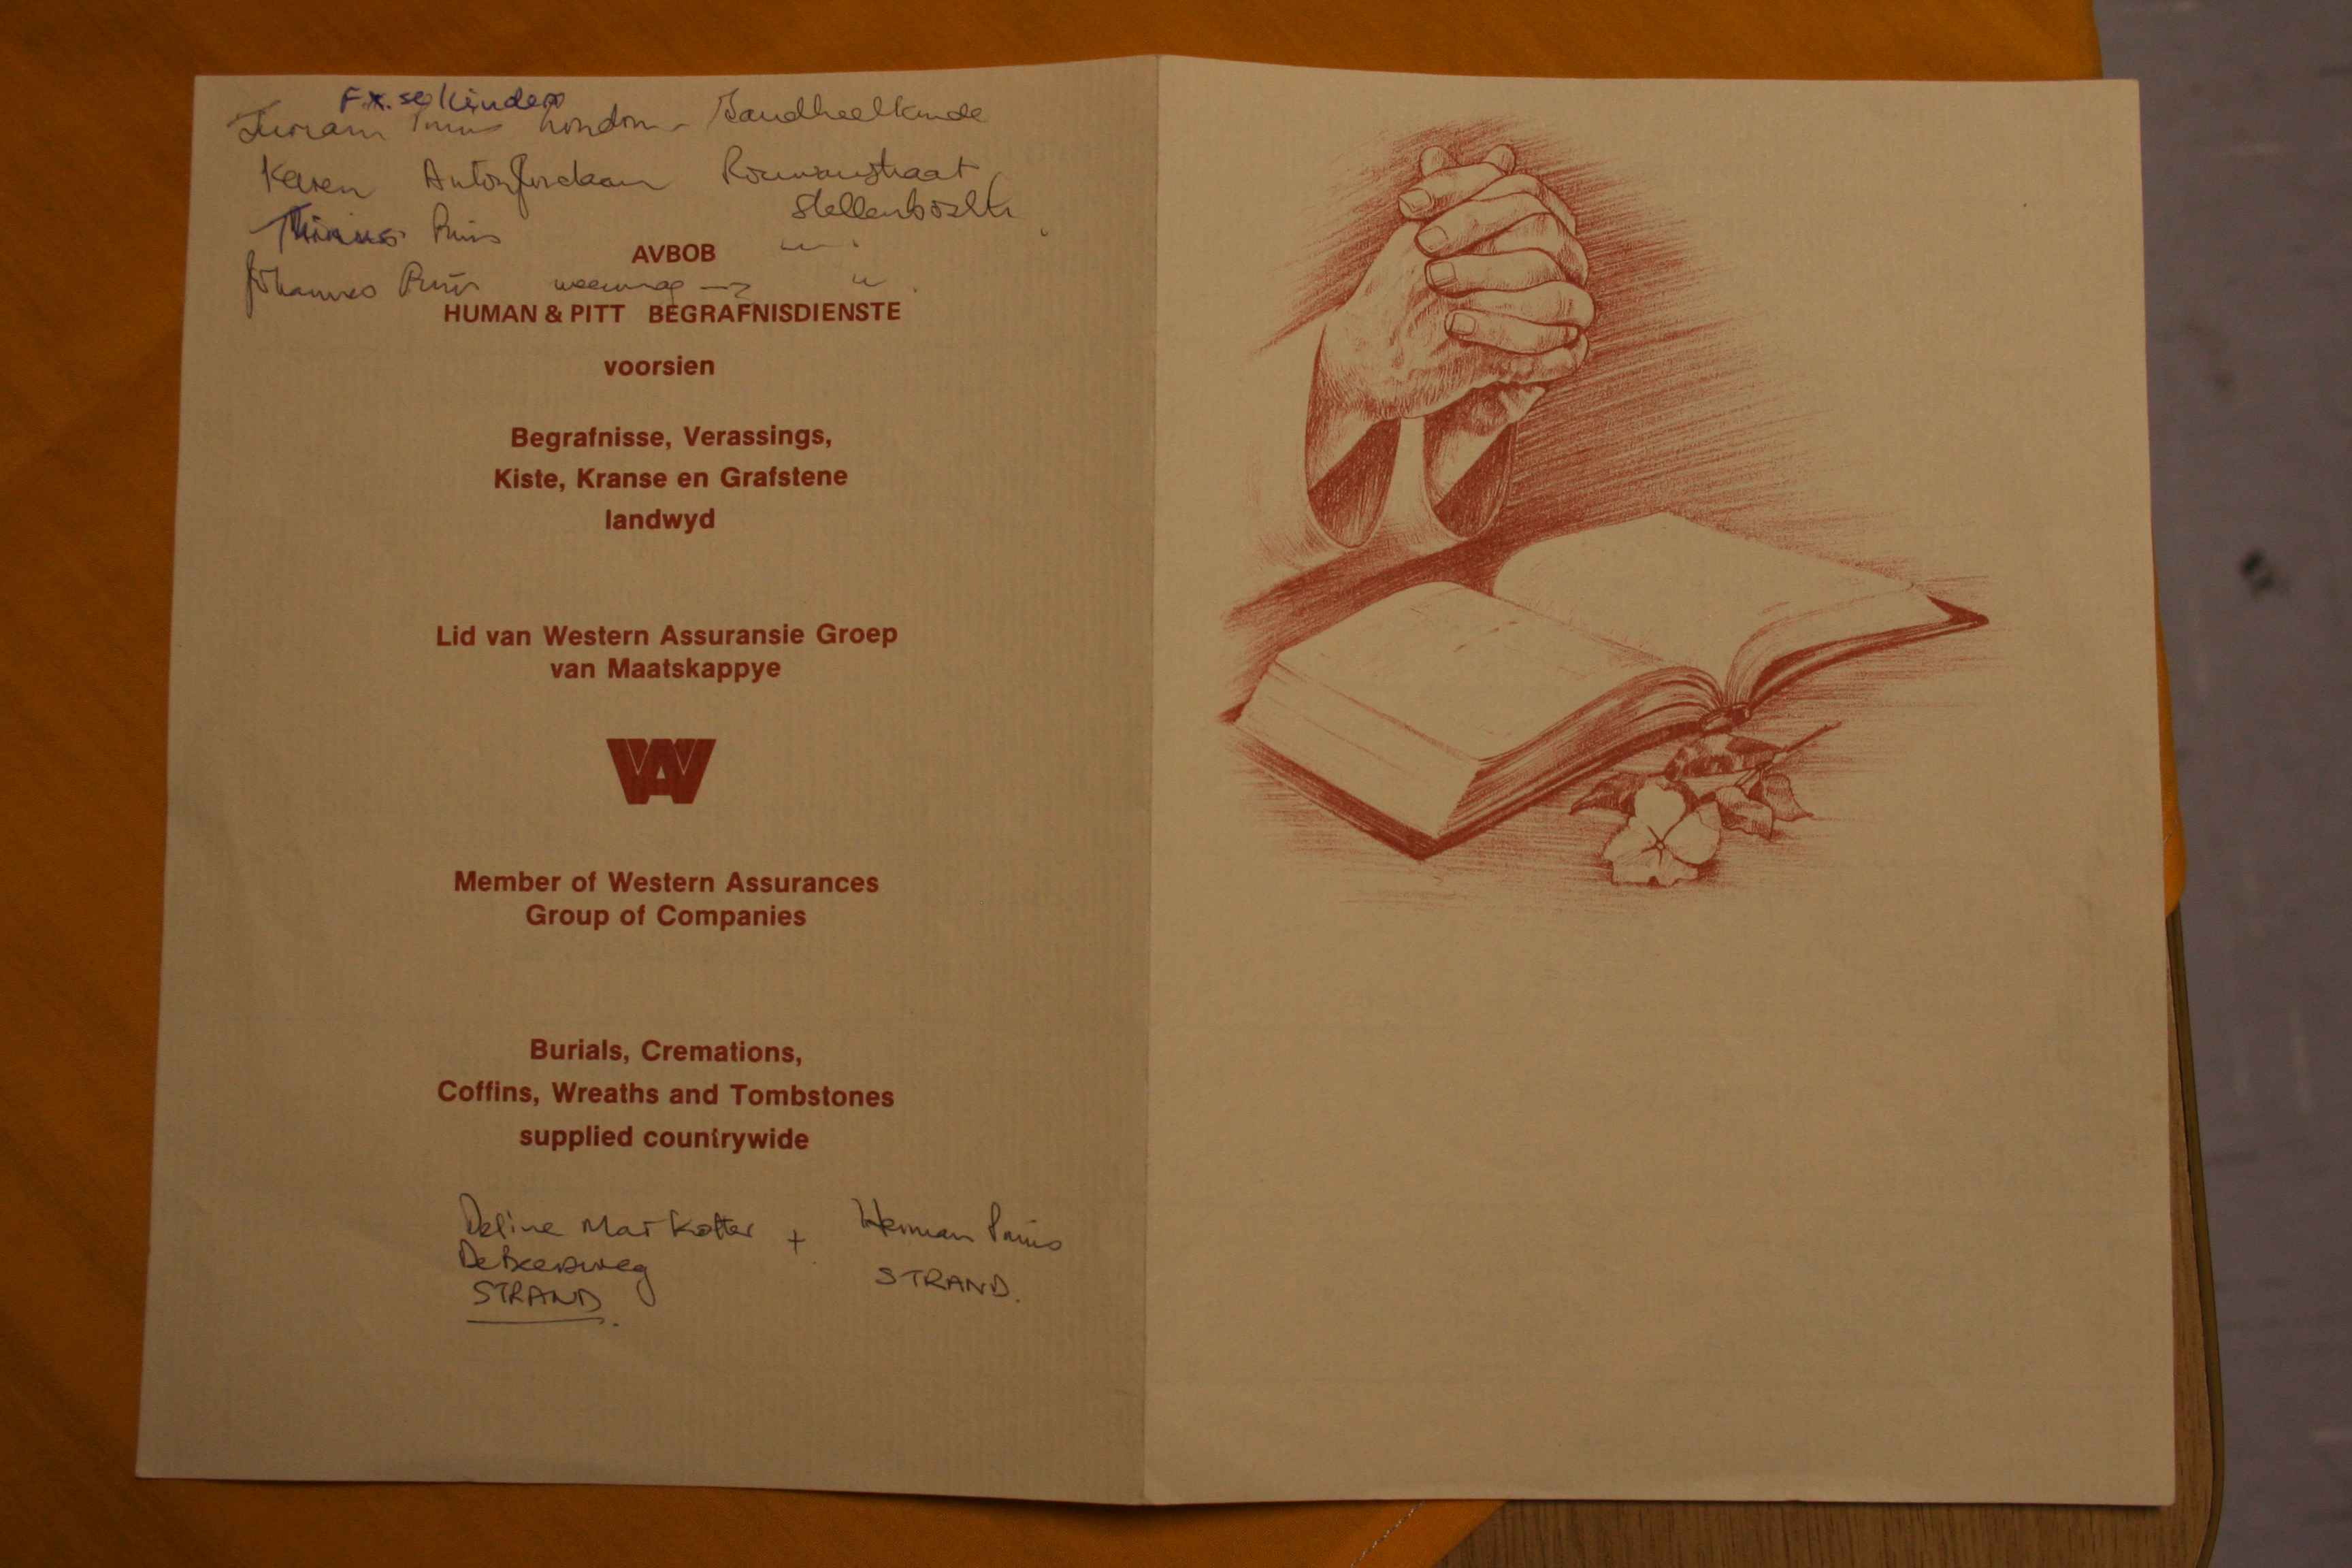 F.X. se kinders
London - Tandheelkunde
Karen Anton Jordaan
Stellenbosch
Thinus Prins
AVBOB
Johannes Prins
HUMAN & PITT BEGRAFNISDIENSTE
voorsien
Begrafnisse, Verassings,
Kiste, Kranse en Grafstene
landwyd
Lid van Western Assuransie Groep
van Maatskappye
WA
Member of Western Assurances
Group of Companies
Burials, Cremations,
Coffins, Wreaths and Tombstones
supplied countrywide
Deline Markotter + Herman Prins
De Beersweg
STRAND
STRAND.